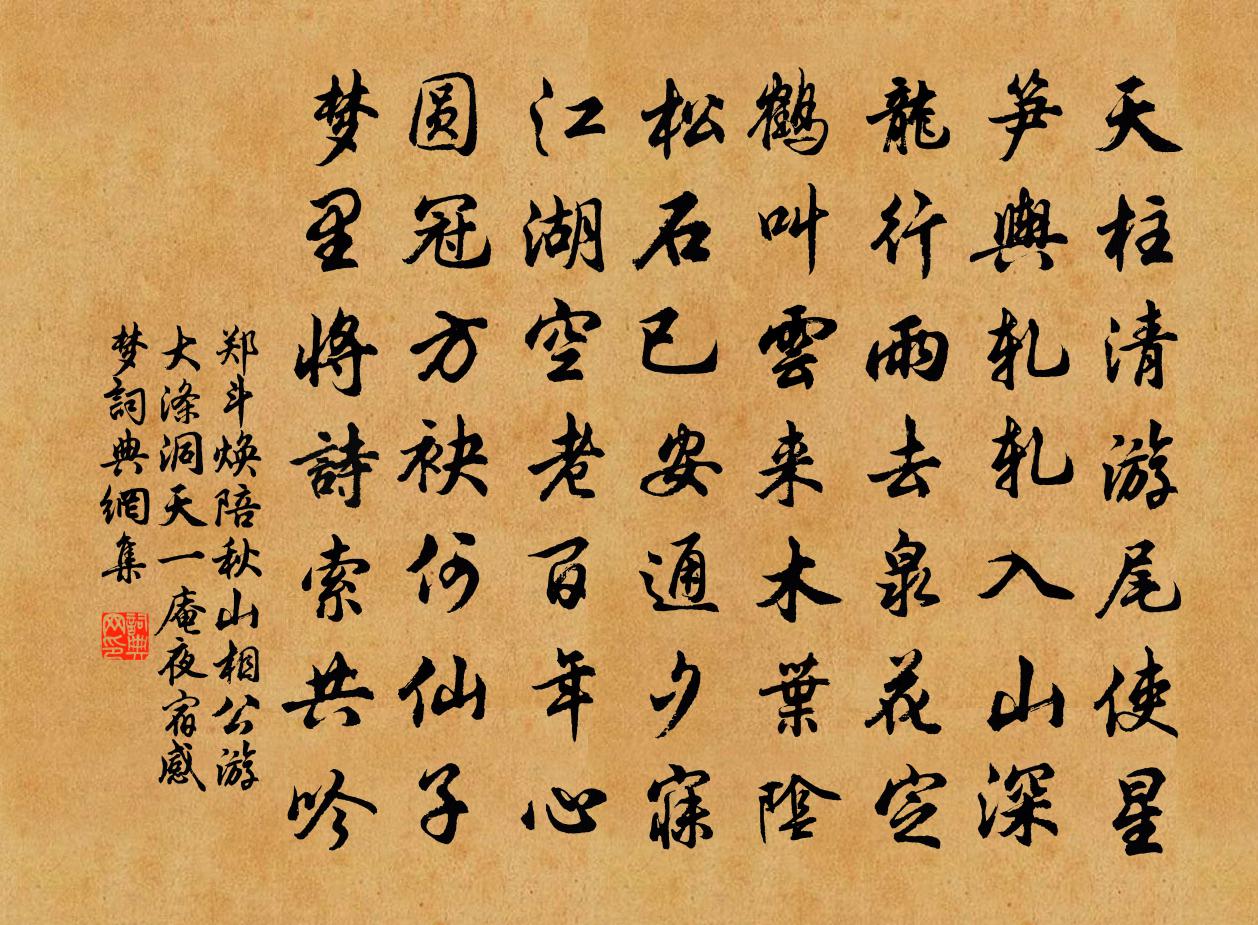 天柱清游尾使星
笋輿軋軋入山深
龍行雨去泉花定
鶴叫雲来木葉陰
松石已安通夕寐
江湖空老百年心
圆冠方袂何仙子
梦里將詩索共吟
郑斗焕陪秋山相公游
大涤洞天一庵夜宿感
梦詞典網集
詞典
网印